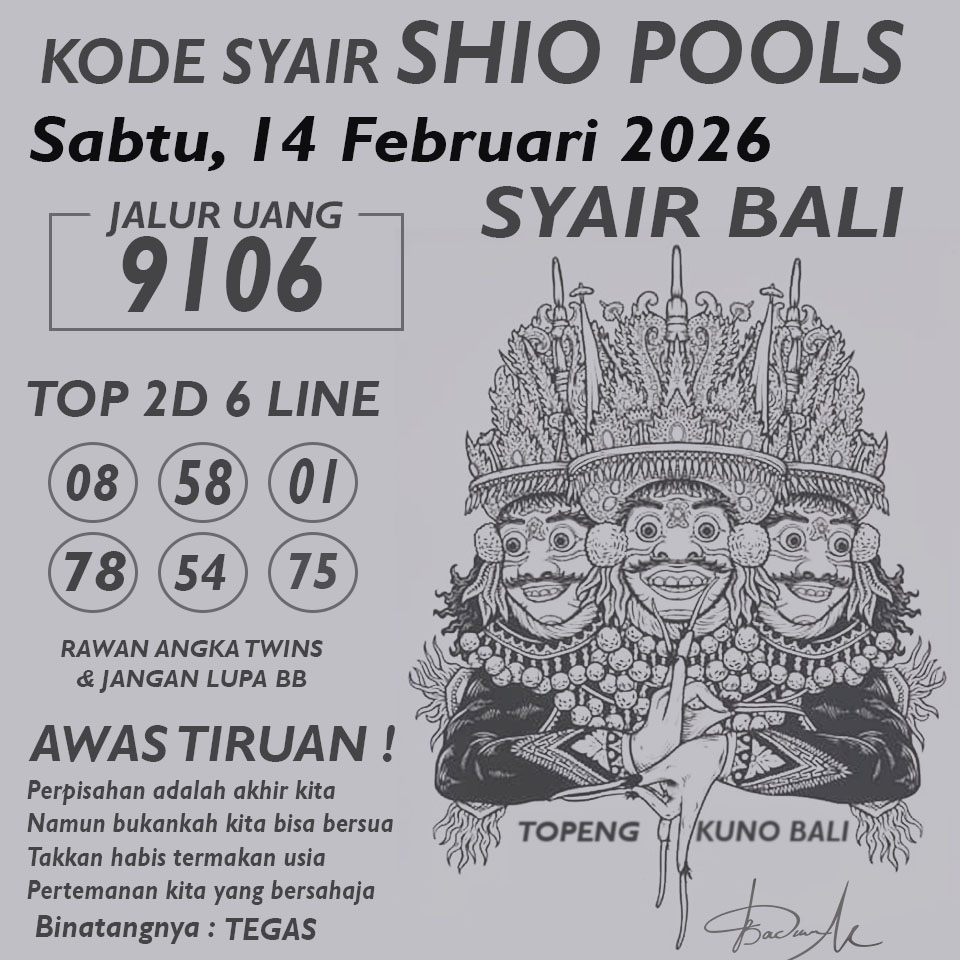 KODE SYAIR SHIO POOLS
Sabtu, 14 Februari 2026
SYAIR BALI
JALUR UANG
9106
TOP 2D 6 LINE
08 58 01
78 54 75
RAWAN ANGKA TWINS
& JANGAN LUPA BB
AWAS TIRUAN !
Perpisahan adalah akhir kita
Namun bukankah kita bisa bersua
Takkan habis termakan usia
Pertemanan kita yang bersahaja
Binatangnya : TEGAS
TOPENG KUNO BALI